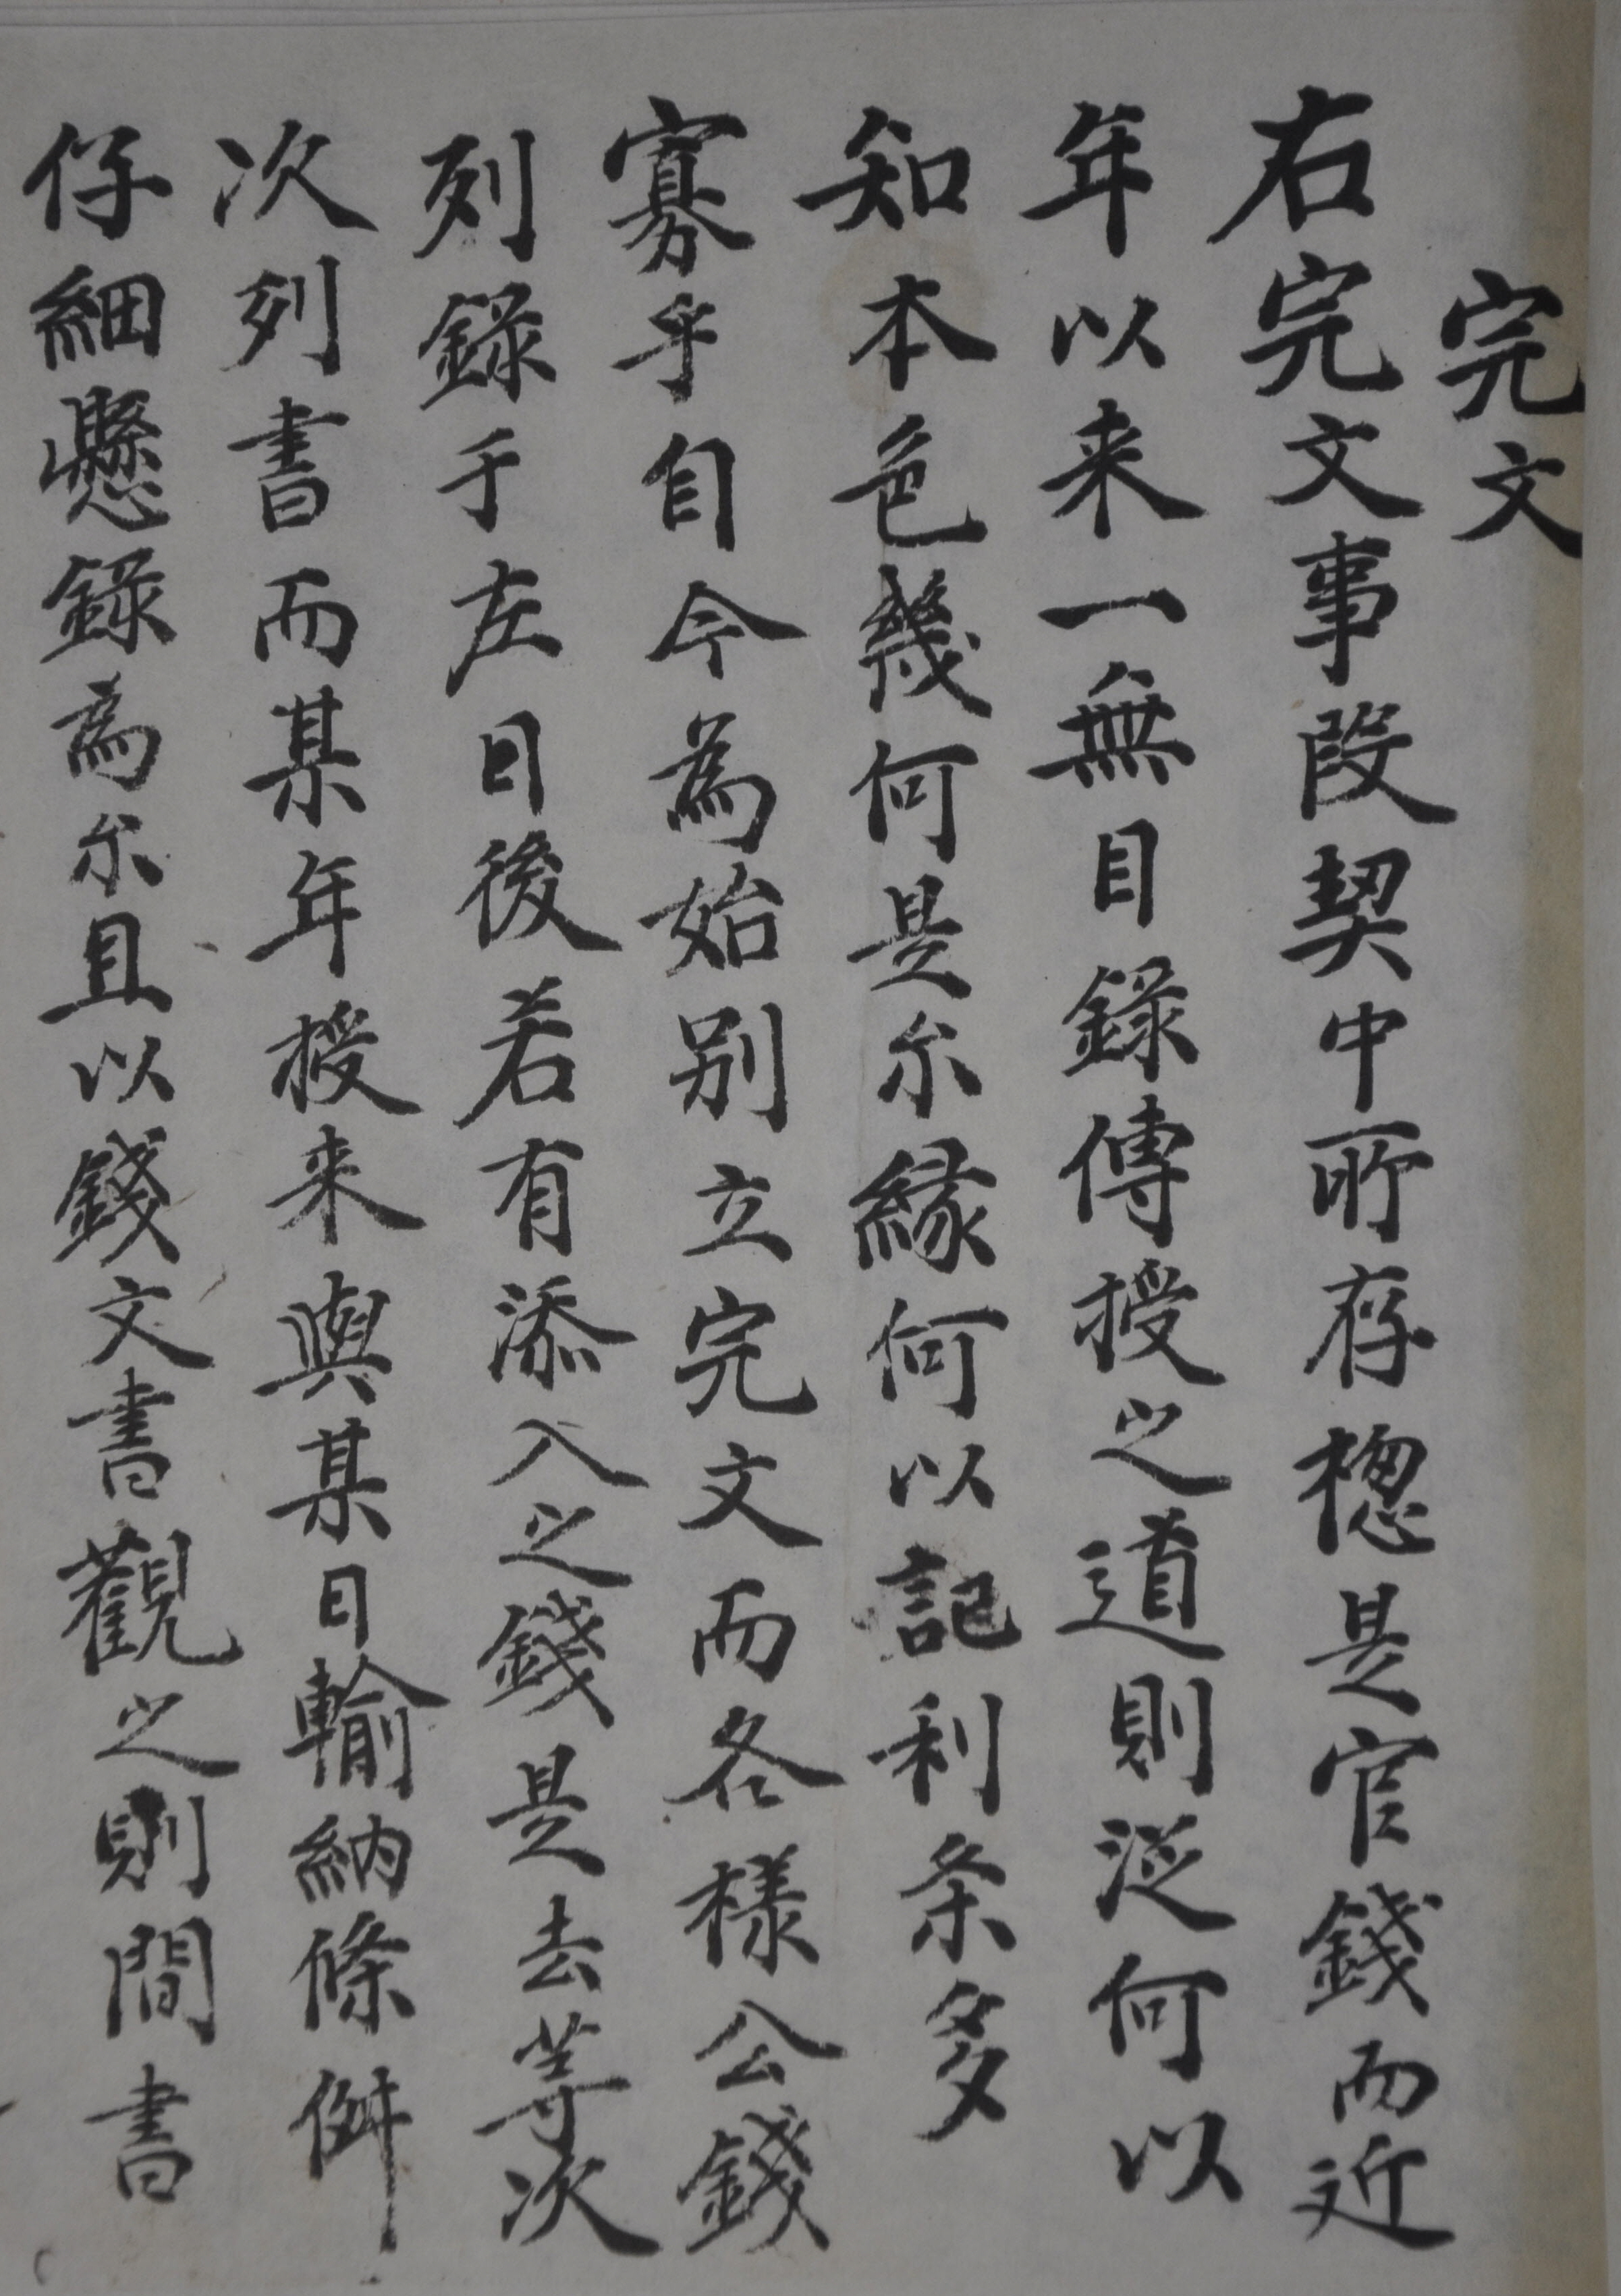 完文
右完文事段契中所存揔是官錢而近
年以来一無目錄傳授之道則泛何以
知本色幾何是尒緣何以記利条多
寡乎自今為始別立完文而各樣公錢
列錄于左日後若有添入之錢是去等次
次列書而某年授来與某日輸納條件
仔細懸錄為尒且以錢文書觀之則間書